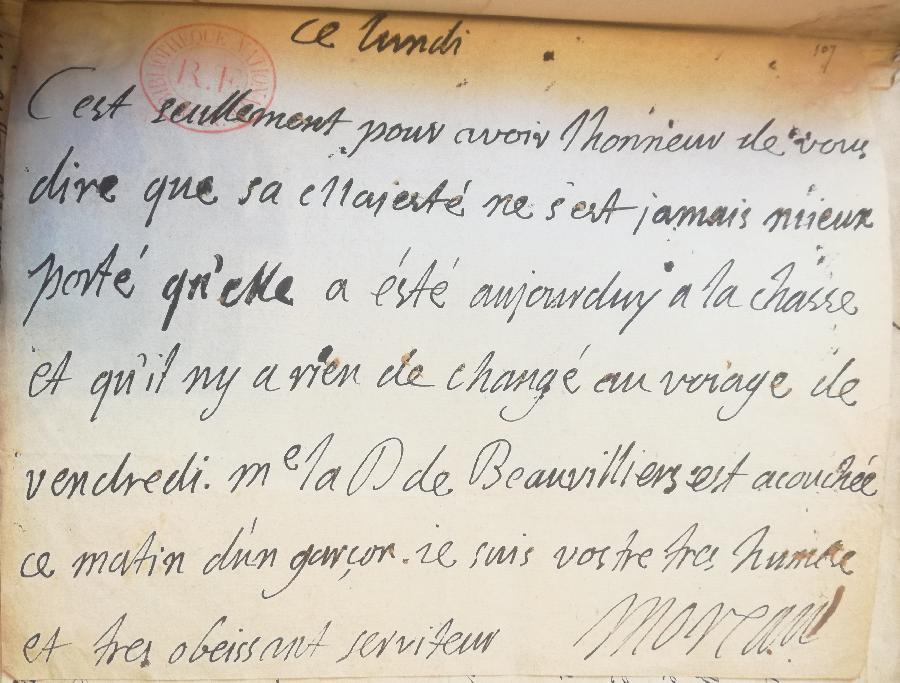 ce lundi
107
BIBLIOTHEQUE NATIONALE
R.F.
C est seullement pour avoir lhonneur de vous
dire que sa Majesté ne s'est jamais mieux
porté qu'elle a ésté aujourduy a la chasse
et qu'il ny a rien de changé au voiage de
vendredi. me la D de Beauvilliers est acouchée
ce matin d'un garçon. ie suis vostre tres humble
et tres obeissant serviteur Moreau